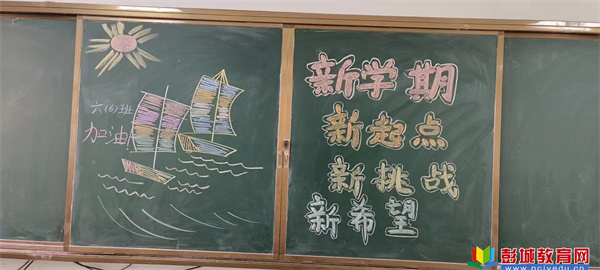 六(6)班
加油
新学期
新起点
新挑战
新希望
彭城教育网
www.pcjyedu.cn